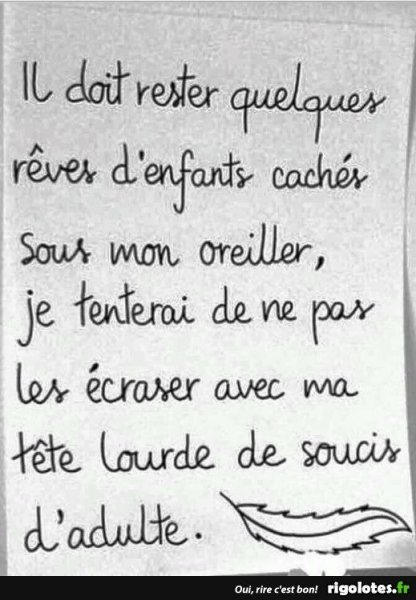 Il doit rester quelques
rêves d'enfants cachés
sous mon oreiller,
je tenterai de ne pas
les écraser avec ma
tête lourde de soucis
d'adulte.
Oui, rire c'est bon! rigolotes.fr